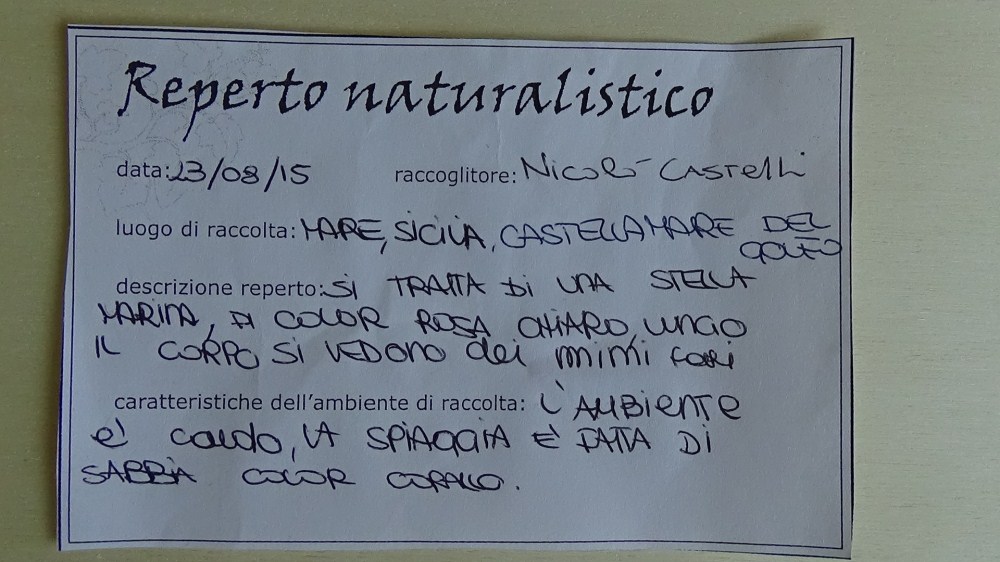 Reperto naturalistico
data: 23/08/15 raccoglitore: NICOLÒ CASTELLI
luogo di raccolta: MARE, SICILIA, CASTELLAMARE DEL
GOLFO
descrizione reperto: SI TRATTA DI UNA STELLA
MARINA, DI COLOR ROSA CHIARO, LUNGO
IL CORPO SI VEDONO dei mimi fori
caratteristiche dell'ambiente di raccolta: L'AMBIENTE
è caldo, LA SPIAGGIA È FATTA DI
SABBIA COLOR CORALLO.